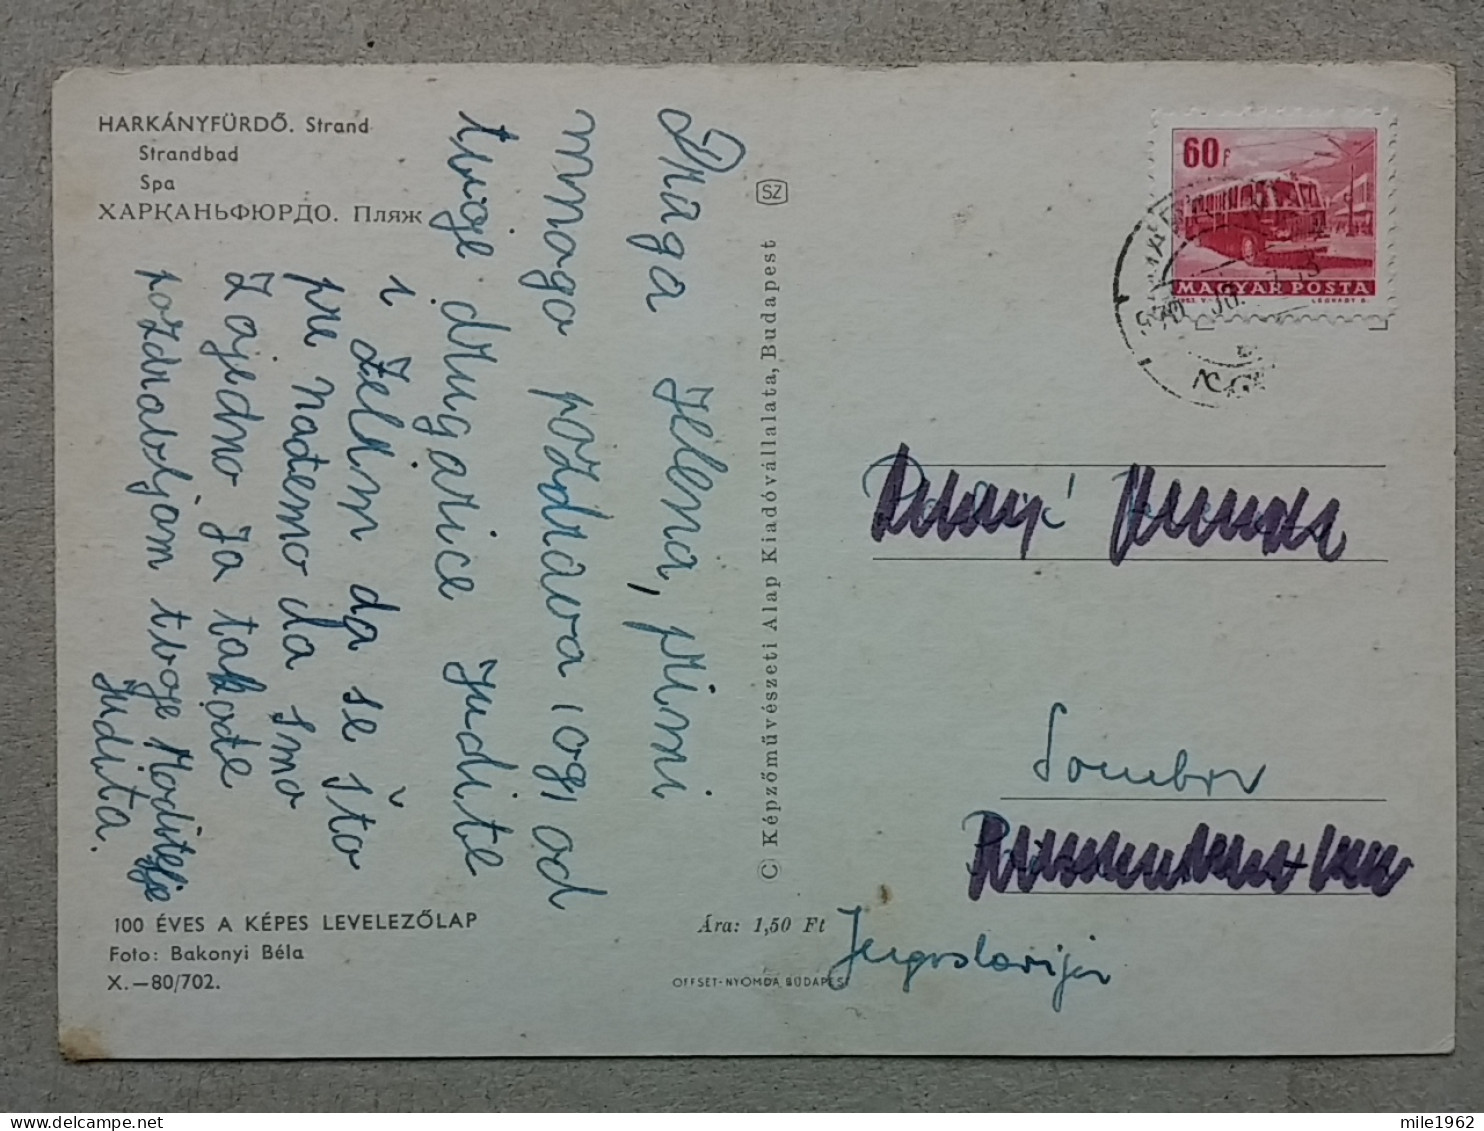 HARKÁNYFÜRDŐ. Strand
Strandbad
Spa
ХАРКАНЬФЮРДО. Пляж
Draga Jelena, primi
mnogo pozdrava iogi od
tvoje drugarice Judite
i želim da se što
pre nađemo da smo
Zajedno Ja takođe
pozdravljam tvoje Roditelje
Judita.
100 ÉVES A KÉPES LEVELEZŐLAP
Foto: Bakonyi Béla
X.—80/702.
SZ
© Képzőművészeti Alap Kiadóvállalata, Budapest
Ára: 1,50 Ft
OFFSET-NYOMDA BUDAPEST
60f
MAGYAR POSTA
Sombor
Jugoslavija
mile1962